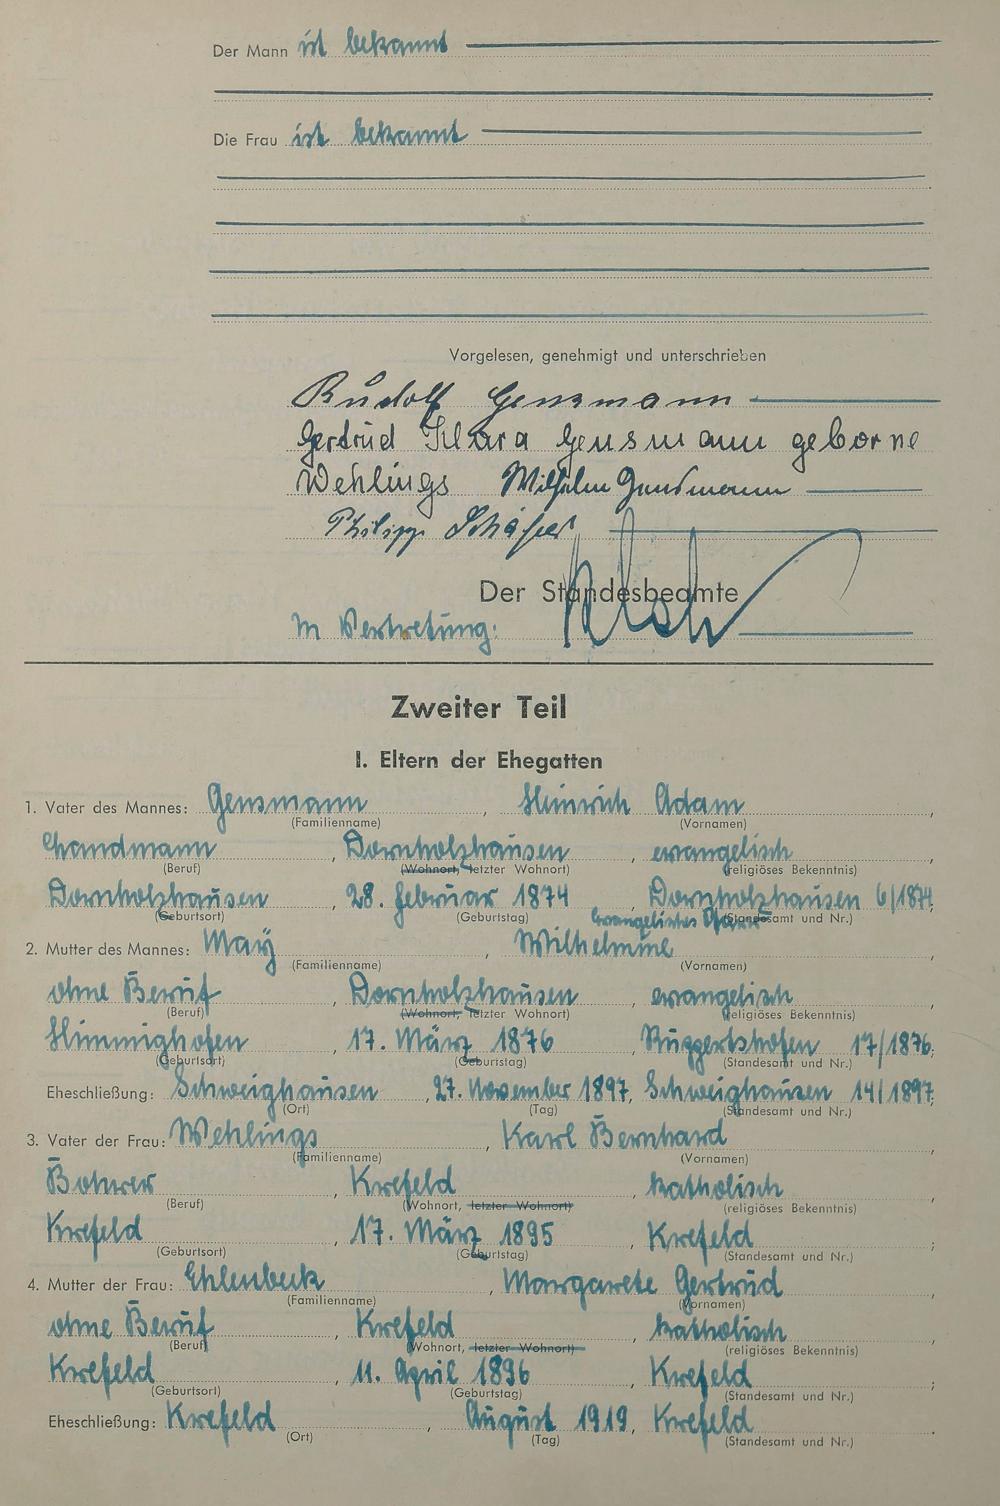 Der Mann ist bekannt
Die Frau ist bekannt
Vorgelesen, genehmigt und unterschrieben
Rudolf Gensmann
Gertrud Klara Gensmann geborne
Wehlings Wilhelm Gensmann
Philipp Schäfer
Der Standesbeamte
In Vertretung:
Zweiter Teil
I. Eltern der Ehegatten
1. Vater des Mannes: Gensmann, Heinrich Adam,
(Familienname) (Vornamen)
Landmann, Dornholzhausen, evangelisch,
(Beruf) (Wohnort, letzter Wohnort) (religiöses Bekenntnis)
Dornholzhausen, 28. Februar 1874, Dornholzhausen 6/1874,
(Geburtsort) (Geburtstag) evangelisches Pfarr (Standesamt und Nr.)
2. Mutter des Mannes: May, Wilhelmine,
(Familienname) (Vornamen)
ohne Beruf, Dornholzhausen, evangelisch,
(Beruf) (Wohnort, letzter Wohnort) (religiöses Bekenntnis)
Himmighofen, 17. März 1876, Ruppertshofen 17/1876;
(Geburtsort) (Geburtstag) (Standesamt und Nr.)
Eheschließung: Schweighausen, 27. November 1897, Schweighausen 14/1897;
(Ort) (Tag) (Standesamt und Nr.)
3. Vater der Frau: Wehlings, Karl Bernhard,
(Familienname) (Vornamen)
Bohrer, Krefeld, katholisch,
(Beruf) (Wohnort, letzter Wohnort) (religiöses Bekenntnis)
Krefeld, 17. März 1895, Krefeld;
(Geburtsort) (Geburtstag) (Standesamt und Nr.)
4. Mutter der Frau: Ehlenbeck, Margarete Gertrud,
(Familienname) (Vornamen)
ohne Beruf, Krefeld, katholisch,
(Beruf) (Wohnort, letzter Wohnort) (religiöses Bekenntnis)
Krefeld, 11. April 1896, Krefeld;
(Geburtsort) (Geburtstag) (Standesamt und Nr.)
Eheschließung: Krefeld, August 1919, Krefeld.
(Ort) (Tag) (Standesamt und Nr.)